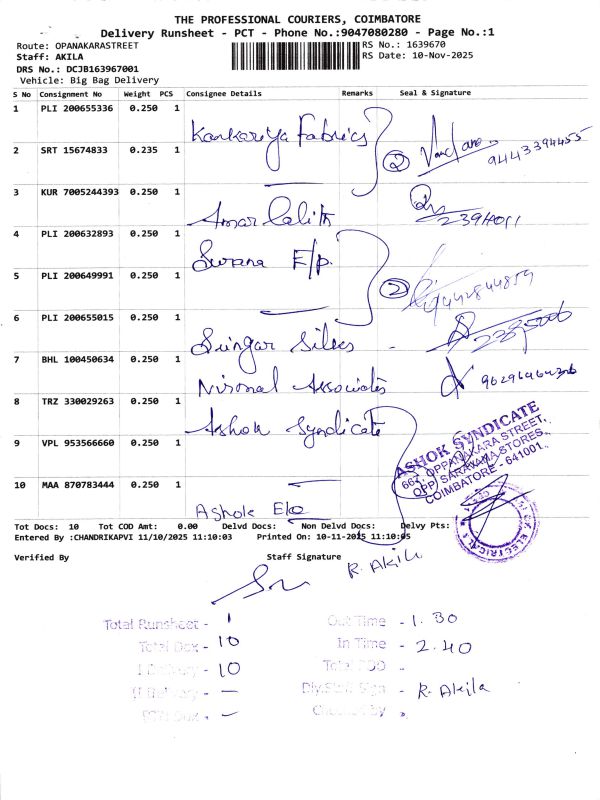 THE PROFESSIONAL COURIERS, COIMBATORE
Delivery Runsheet - PCT - Phone No.:9047080280 - Page No.:1
Route: OPANAKARASTREET
RS No.: 1639670
Staff: AKILA
RS Date: 10-Nov-2025
DRS No.: DCJB163967001
Vehicle: Big Bag Delivery
S No Consignment No Weight PCS Consignee Details Remarks Seal & Signature
1 PLI 200655336 0.250 1 Kankariya Fabrics
2 9443394455
2 SRT 15674833 0.235 1
3 KUR 7005244393 0.250 1 Amar Lalith
4 PLI 200632893 0.250 1 Suvana F/p.
5 PLI 200649991 0.250 1
2 9442844859
6 PLI 200655015 0.250 1 Sungar Silks
7 BHL 100450634 0.250 1 Nirmal Associates
8 TRZ 330029263 0.250 1 Ashok Syndicate
ASHOK SYNDICATE
667, OPPANAKARA STREET,
OPP. SARAVANA STORES,
COIMBATORE - 641001.
9 VPL 953566660 0.250 1
10 MAA 870783444 0.250 1 Ashok Ele
Tot Docs: 10 Tot COD Amt: 0.00 Delvd Docs: Non Delvd Docs: Delvy Pts:
Entered By :CHANDRIKAPVI 11/10/2025 11:10:03 Printed On: 10-11-2025 11:10:05
Verified By Staff Signature R. Akila
Total Runsheet - 1 Out Time - 1.30
Total Dox - 10 In Time - 2.40
10 Total POD -
- Dly.Staff Sign - R. Akila
- Checked by